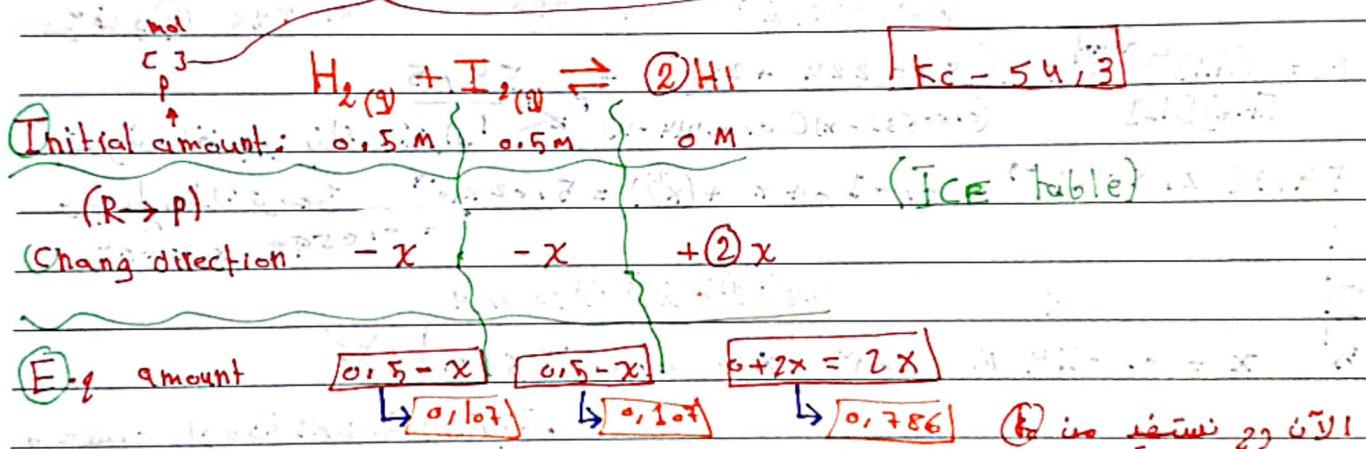 mol
[ ]
P
H2(g) + I2(g) ⇌ 2HI Kc - 54,3
Initial amount: 0,5 M 0.5M 0 M
(R→P) (ICE table)
Chang direction. -x -x +2x
E.q amount 0,5-x 0,5-x 0+2x = 2x
0,107 0,107 0,786
الآن رح نستفيد من k